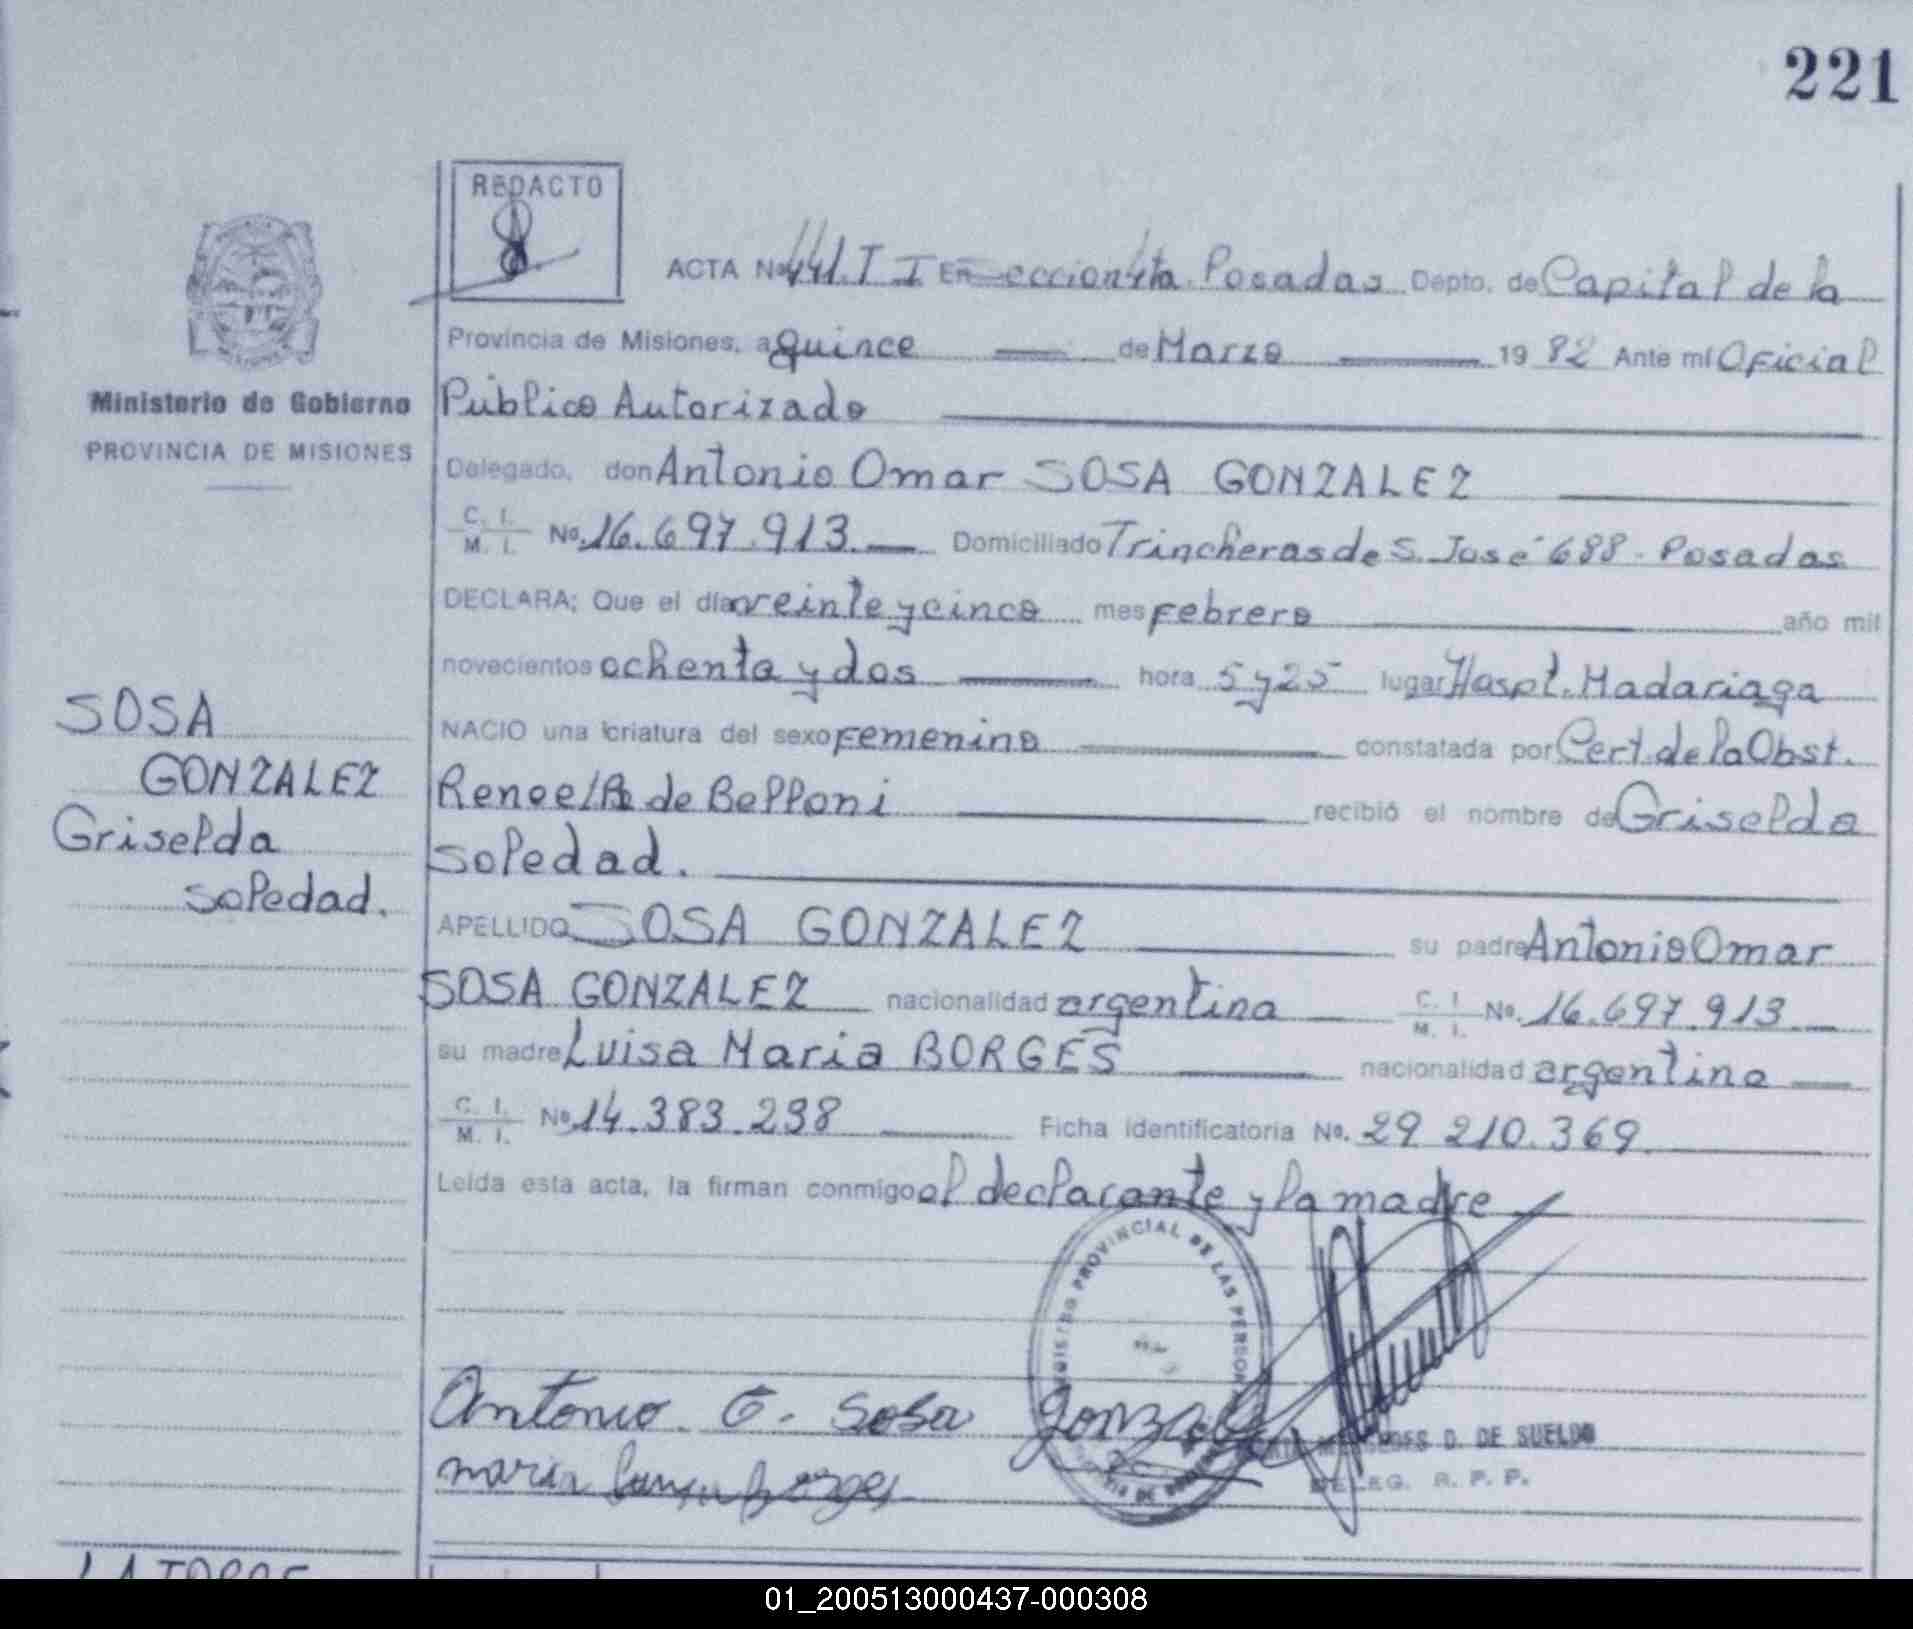 221
REDACTO
ACTA No 441.T I En Seccion 4ta. Posadas Depto. de Capital de la
Provincia de Misiones, a quince de Marzo 1982 Ante mí Oficial
Ministerio de Gobierno
Público Autorizado
PROVINCIA DE MISIONES
Delegado, don Antonio Omar SOSA GONZALEZ
C. I. M. I. No. 16.697.913. Domiciliado Trincheras de S. José 688 - Posadas
DECLARA: Que el día veinte y cinco mes Febrero año mil
novecientos ochenta y dos hora 5 y 25 lugar Hospt. Madariaga
SOSA
NACIO una criatura del sexo Femenino constatada por Cert. de la Obst.
GONZALEZ
Renee de Belloni recibió el nombre de Griselda
Griselda
Soledad.
Soledad.
APELLIDO SOSA GONZALEZ su padre Antonio Omar
SOSA GONZALEZ nacionalidad argentina C. I. M. I. No. 16.697.913
su madre Luisa Maria BORGES nacionalidad argentina
C. I. M. I. No 14.383.238 Ficha identificatoria No. 29 210.369
Leída esta acta, la firman conmigo el declarante y la madre
REGISTRO PROVINCIAL DE LAS PERSONAS
Antonio O. Sosa Gonzalez
MERCEDES D. DE SUELDO
maria Borges
DELEG. R. P. P.
LATORRE
01_200513000437-000308